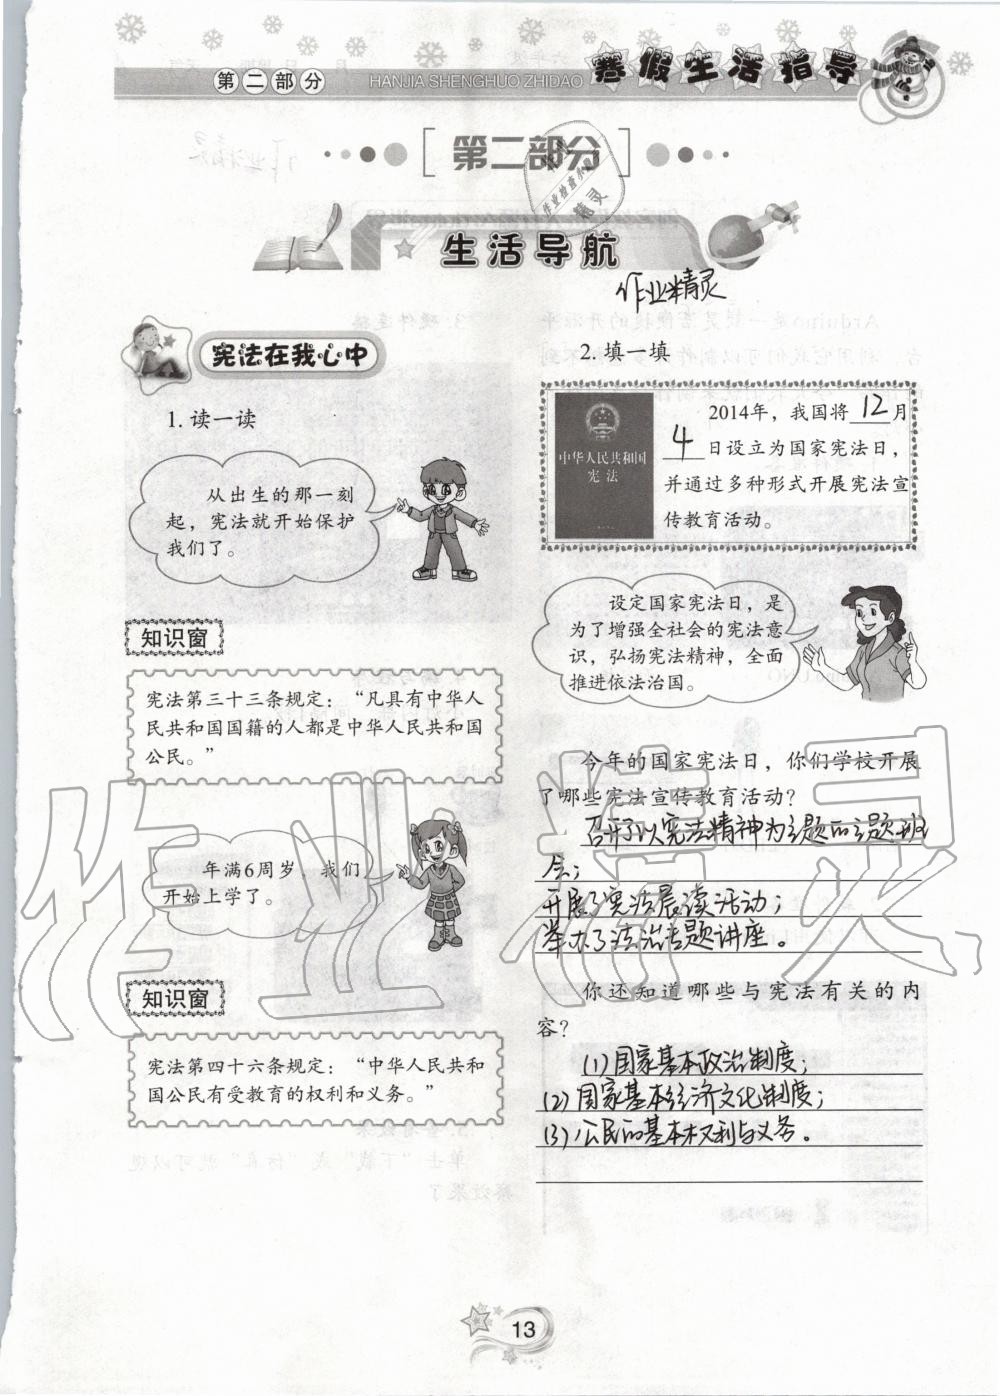 第二部分
HANJIA SHENGHUO ZHIDAO
寒假生活指导
第二部分
生活导航
作业精灵
宪法在我心中
1. 读一读
从出生的那一刻
起，宪法就开始保护
我们了。
知识窗
宪法第三十三条规定：“凡具有中华人
民共和国国籍的人都是中华人民共和国
公民。”
年满6周岁，我们
开始上学了。
知识窗
宪法第四十六条规定：“中华人民共和
国公民有受教育的权利和义务。”
2. 填一填
中华人民共和国
宪法
2014年，我国将12月
4日设立为国家宪法日，
并通过多种形式开展宪法宣
传教育活动。
设定国家宪法日，是
为了增强全社会的宪法意
识，弘扬宪法精神，全面
推进依法治国。
今年的国家宪法日，你们学校开展
了哪些宪法宣传教育活动？
召开了以宪法精神为主题的主题班
会；
开展了宪法晨读活动；
举办了法治专题讲座。
你还知道哪些与宪法有关的内
容？
(1)国家基本政治制度；
(2)国家基本经济文化制度；
(3)公民的基本权利与义务。
作业精灵
13